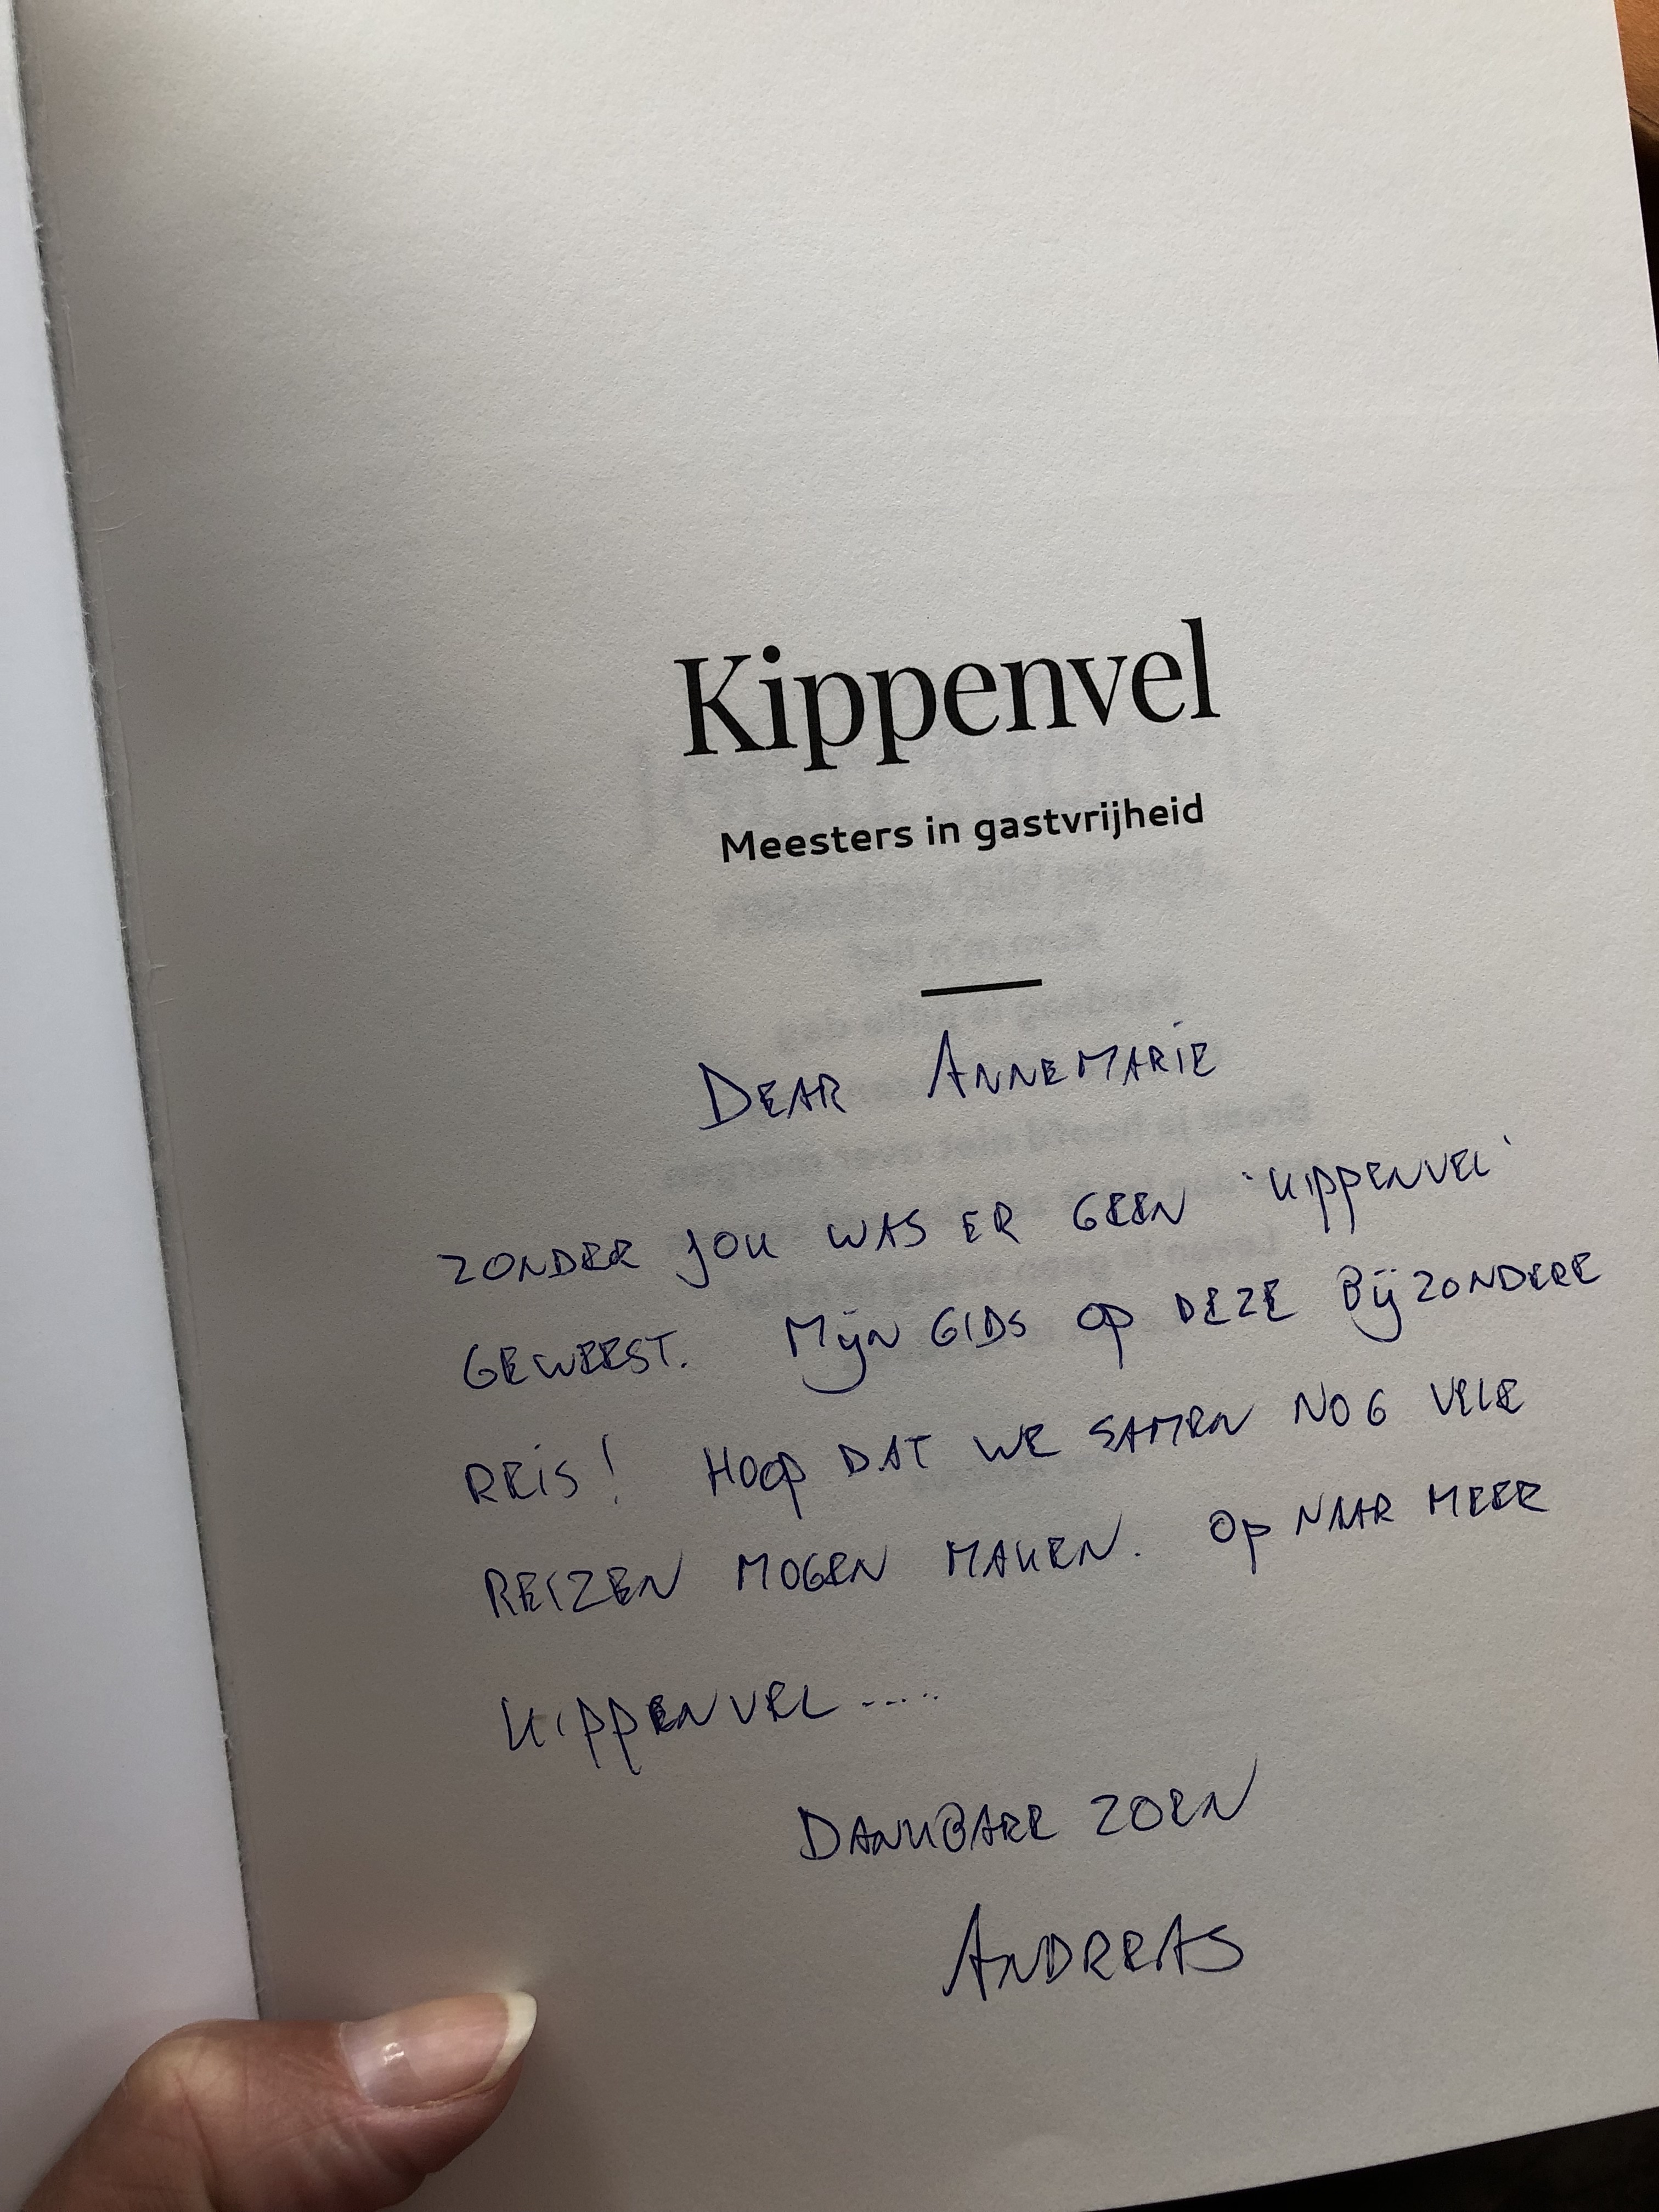 Kippenvel
Meesters in gastvrijheid
DEAR ANNEMARIE
ZONDER JOU WAS ER GEEN 'KIPPENVEL'
GEWEEST. MIJN GIDS OP DEZE BIJZONDERE
REIS! HOOP DAT WE SAMEN NOG VELE
REIZEN MOGEN MAKEN. OP NAAR MEER
KIPPENVEL.....
DANKBARE ZOEN
ANDREAS